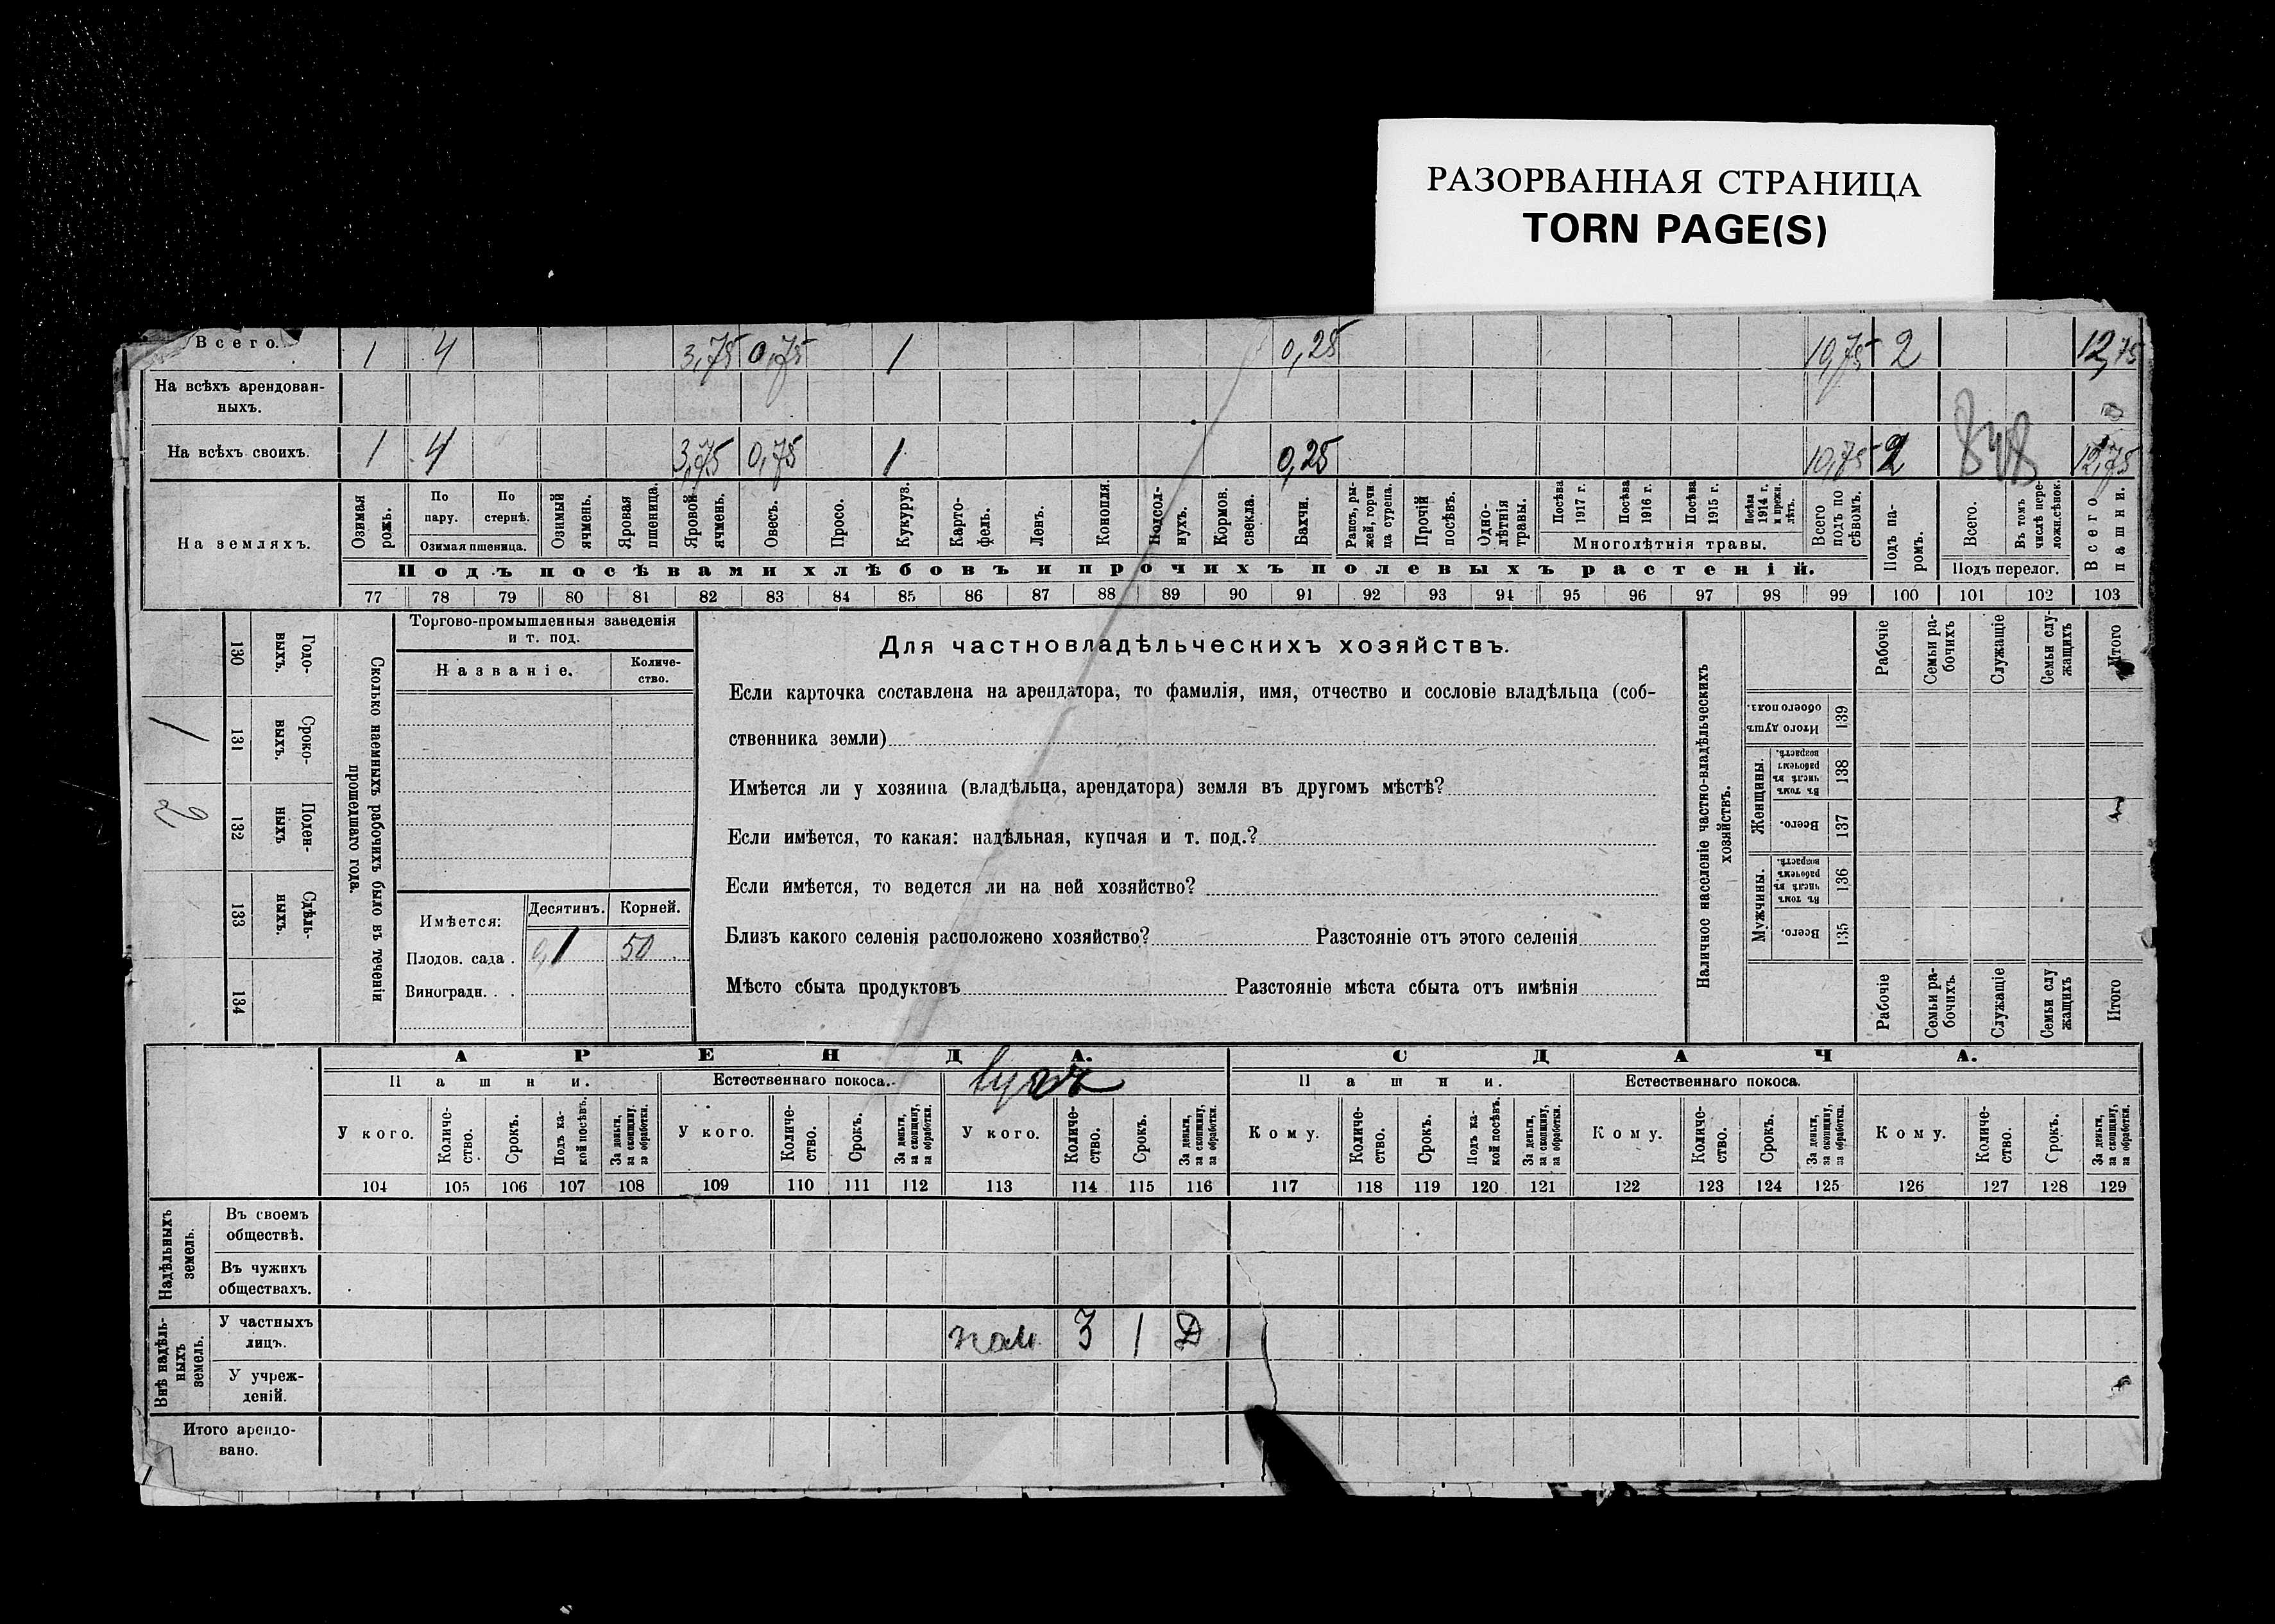 РАЗОРВАННАЯ СТРАНИЦА
TORN PAGE(S)
Всего. 1 4 3,75 0,75 1 0,25 10,75 2 12,75
На всѣхъ арендован-
ныхъ.
На всѣхъ своихъ. 1 4 3,75 0,75 1 0,25 10,75 2 12,75
На земляхъ.
Озимая рожь.
По пару.
По стернѣ.
Озимая пшеница.
Озимый ячмень.
Яровая пшеница.
Яровой ячмень.
Овесъ.
Просо.
Кукуруз.
Карто-
фель.
Ленъ.
Конопля.
Подсол-
нухъ.
Кормов. свекла.
Бахчи.
Рапсъ, ры-
жей, горчи
ца сурепа.
Прочій посѣвъ.
Одно-
лѣтнія травы.
Посѣва 1917 г.
Посѣва 1916 г.
Посѣва 1915 г.
Посѣва 1914 г. и прежн. лѣтъ.
Многолѣтнія травы.
Всего подъ по
сѣвомъ.
Подъ посѣвами хлѣбовъ и прочихъ полевыхъ растеній.
Подъ па-
ромъ.
Всего.
Въ томъ числѣ пере-
ложн.сѣнок.
Подъ перелог.
Всего пашни.
77 78 79 80 81 82 83 84 85 86 87 88 89 90 91 92 93 94 95 96 97 98 99 100 101 102 103
1
2
130 131 132 133 134
Годо-
выхъ.
Сроко-
выхъ.
Поден-
ныхъ
Сдѣль-
ныхъ.
Сколько наемныхъ рабочихъ было въ теченіи
прошедшаго года.
Торгово-промышленныя заведенія
и т. под.
Названіе.
Количе-
ство.
Имѣется:
Десятинъ. Корней.
Плодов. сада . 0,1 50
Виноградн. . .
Для частновладѣльческихъ хозяйствъ.
Если карточка составлена на арендатора, то фамилія, имя, отчество и сословіе владѣльца (соб-
ственника земли)
Имѣется ли у хозяина (владѣльца, арендатора) земля въ другомъ мѣстѣ?
Если имѣется, то какая: надѣльная, купчая и т. под.?
Если имѣется, то ведется ли на ней хозяйство?
Близъ какого селенія расположено хозяйство? Разстояніе отъ этого селенія
Мѣсто сбыта продуктовъ Разстояніе мѣста сбыта отъ имѣнія
Наличное населеніе частно-владѣльческихъ
хозяйствъ.
Рабочіе
Семьи ра-
бочихъ
Служащіе
Семьи слу-
жащихъ
Итого
Итого душъ обоего пола. 139
Женщины.
Въ томъ числѣ въ рабочемъ возрастѣ. 138
Всего. 137
Мужчины.
Въ томъ числѣ въ рабочемъ возрастѣ. 136
Всего. 135
Рабочіе
Семьи ра-
бочихъ.
Служащіе
Семьи слу
жащихъ
Итого
АРЕНДА. СДАЧА.
Пашни. Естественнаго покоса. Пашни. Естественнаго покоса.
У кого.
Количе-
ство.
Срокъ.
Подъ ка-
кой посѣвъ.
За деньги, за скопщину, за обработки.
У кого.
Количе-
ство.
Срокъ.
За деньги, за скопщину, за обработки.
У кого.
Количе-
ство.
Срокъ.
За деньги, за скопщину, за обработки.
Кому.
Количе-
ство.
Срокъ.
Подъ ка-
кой посѣвъ.
За деньги, за скопщину, за обработки.
Кому.
Количе-
ство.
Срокъ.
За деньги, за скопщину, за обработки.
Кому.
Количе-
ство.
Срокъ.
За деньги, за скопщину, за обработки.
104 105 106 107 108 109 110 111 112 113 114 115 116 117 118 119 120 121 122 123 124 125 126 127 128 129
Надѣльныхъ земель.
Въ своемъ
обществѣ.
Въ чужихъ
обществахъ.
Внѣ надѣль-
ныхъ земель.
У частныхъ
лицъ. 3 1 Д
У учреж-
деній.
Итого арендо-
вано.